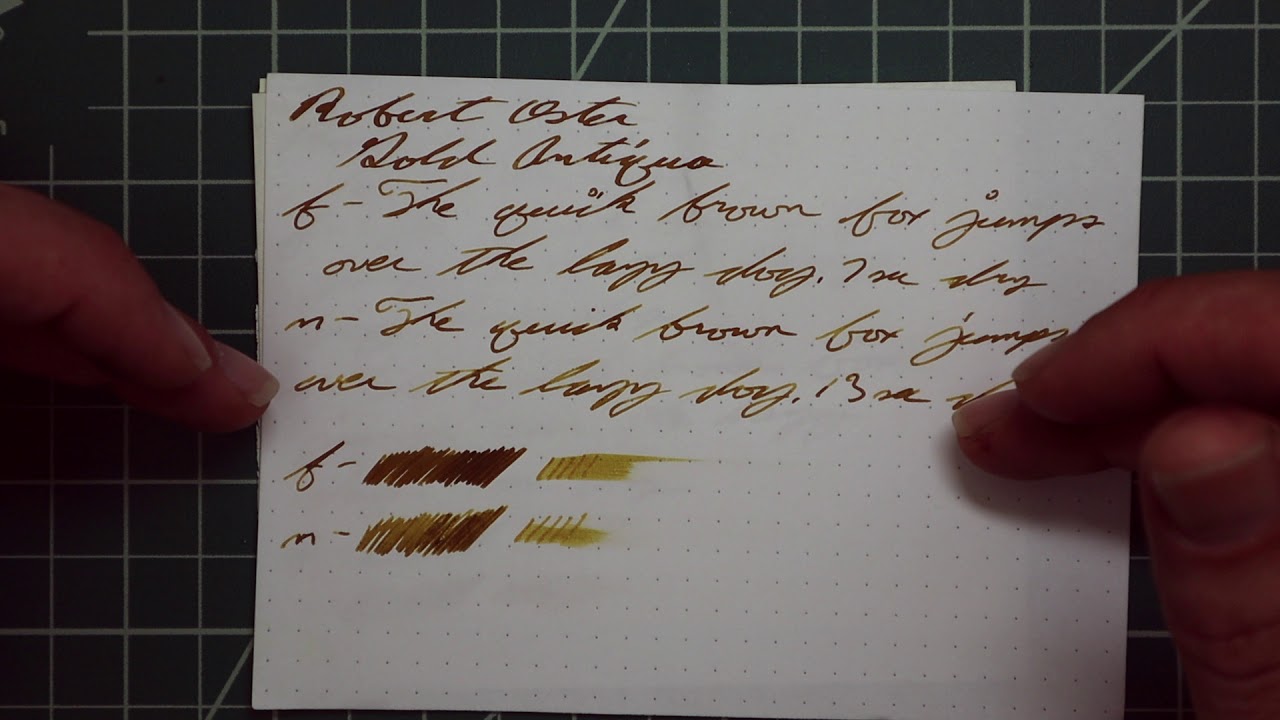 Robert Oster
Gold Antiqua
f - The quick brown fox jumps
over the lazy dog. 7 sec dry
m - The quick brown fox jumps
over the lazy dog. 13 sec
f -
m -